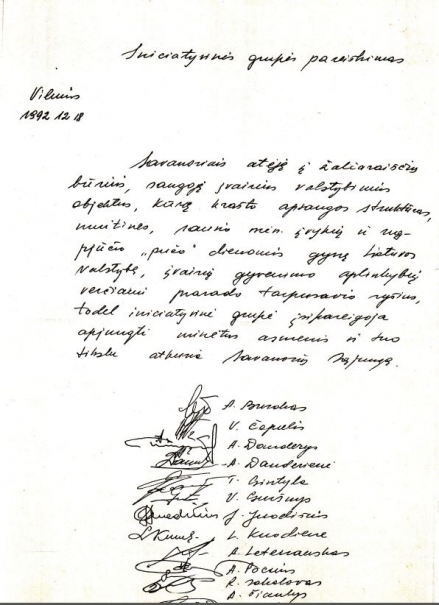 Iniciatyvinės grupės pareiškimas
Vilnius
1992 12 18
Savanoriais atėję į žaliaraiščių
būrius, saugoję įvairius valstybinius
objektus, karą krašto apsaugos struktūras,
muitines, sausio mėn. įvykių ir rug-
pjūčio „pučo" dienomis gynę Lietuvos
valstybę, įvairių gyvenimo aplinkybių
verčiami prarado tarpusavio ryšius,
todėl iniciatyvinė grupė įsipareigoja
apjungti minėtus asmenis ir tuo
tikslu atkuria Savanorių Sąjungą.
A. Burokas
V. Čapelis
A. Danderys
A. Danderienė
T. Gintyla
V.
J. Juodišius
L. Kuodienė
A.
A. Pocius
R. Sokolovas
A.